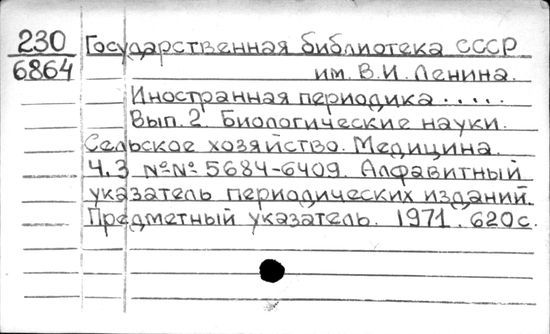 230 Государственная библиотека СССР
6864 им. В.И. Ленина.
Иностранная периодика . . . . .
Вып. 2. Биологические науки.
Сельское хозяйство. Медицина.
Ч.3 №№ 5684-6409. Алфавитный
указатель периодических изданий.
Предметный указатель. 1971. 620с.